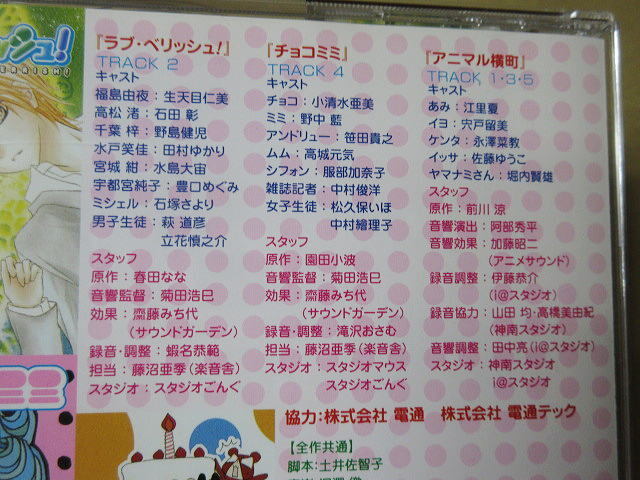 ッシュ!
『ラブ・ベリッシュ!』
TRACK 2
キャスト
福島由夜:生天目仁美
高松 渚:石田 彰
千葉 梓:野島健児
水戸笑佳:田村ゆかり
宮城 紺:水島大宙
宇都宮純子:豊口めぐみ
ミシェル:石塚さより
男子生徒:萩 道彦
立花慎之介
スタッフ
原作:春田なな
音響監督:菊田浩巳
効果:齋藤みち代
(サウンドガーデン)
録音・調整:蝦名恭範
担当:藤沼亜季(楽音舎)
スタジオ:スタジオごんぐ
『チョコミミ』
TRACK 4
キャスト
チョコ:小清水亜美
ミミ:野中 藍
アンドリュー:笹田貴之
ムム:高城元気
シフォン:服部加奈子
雑誌記者:中村俊洋
女子生徒:松久保いほ
中村繪理子
スタッフ
原作:園田小波
音響監督:菊田浩巳
効果:齋藤みち代
(サウンドガーデン)
録音・調整:滝沢おさむ
担当:藤沼亜季(楽音舎)
スタジオ:スタジオマウス
スタジオごんぐ
『アニマル横町』
TRACK 1・3・5
キャスト
あみ:江里夏
イヨ:宍戸留美
ケンタ:永澤菜教
イッサ:佐藤ゆうこ
ヤマナミさん:堀内賢雄
スタッフ
原作:前川 涼
音響演出:阿部秀平
音響効果:加藤昭二
(アニメサウンド)
録音調整:伊藤恭介
(i@スタジオ)
録音協力:山田 均・高橋美由紀
(神南スタジオ)
音響調整:田中亮(i@スタジオ)
スタジオ:神南スタジオ
i@スタジオ
協力:株式会社 電通 株式会社 電通テック
【全作共通】
脚本:土井佐智子